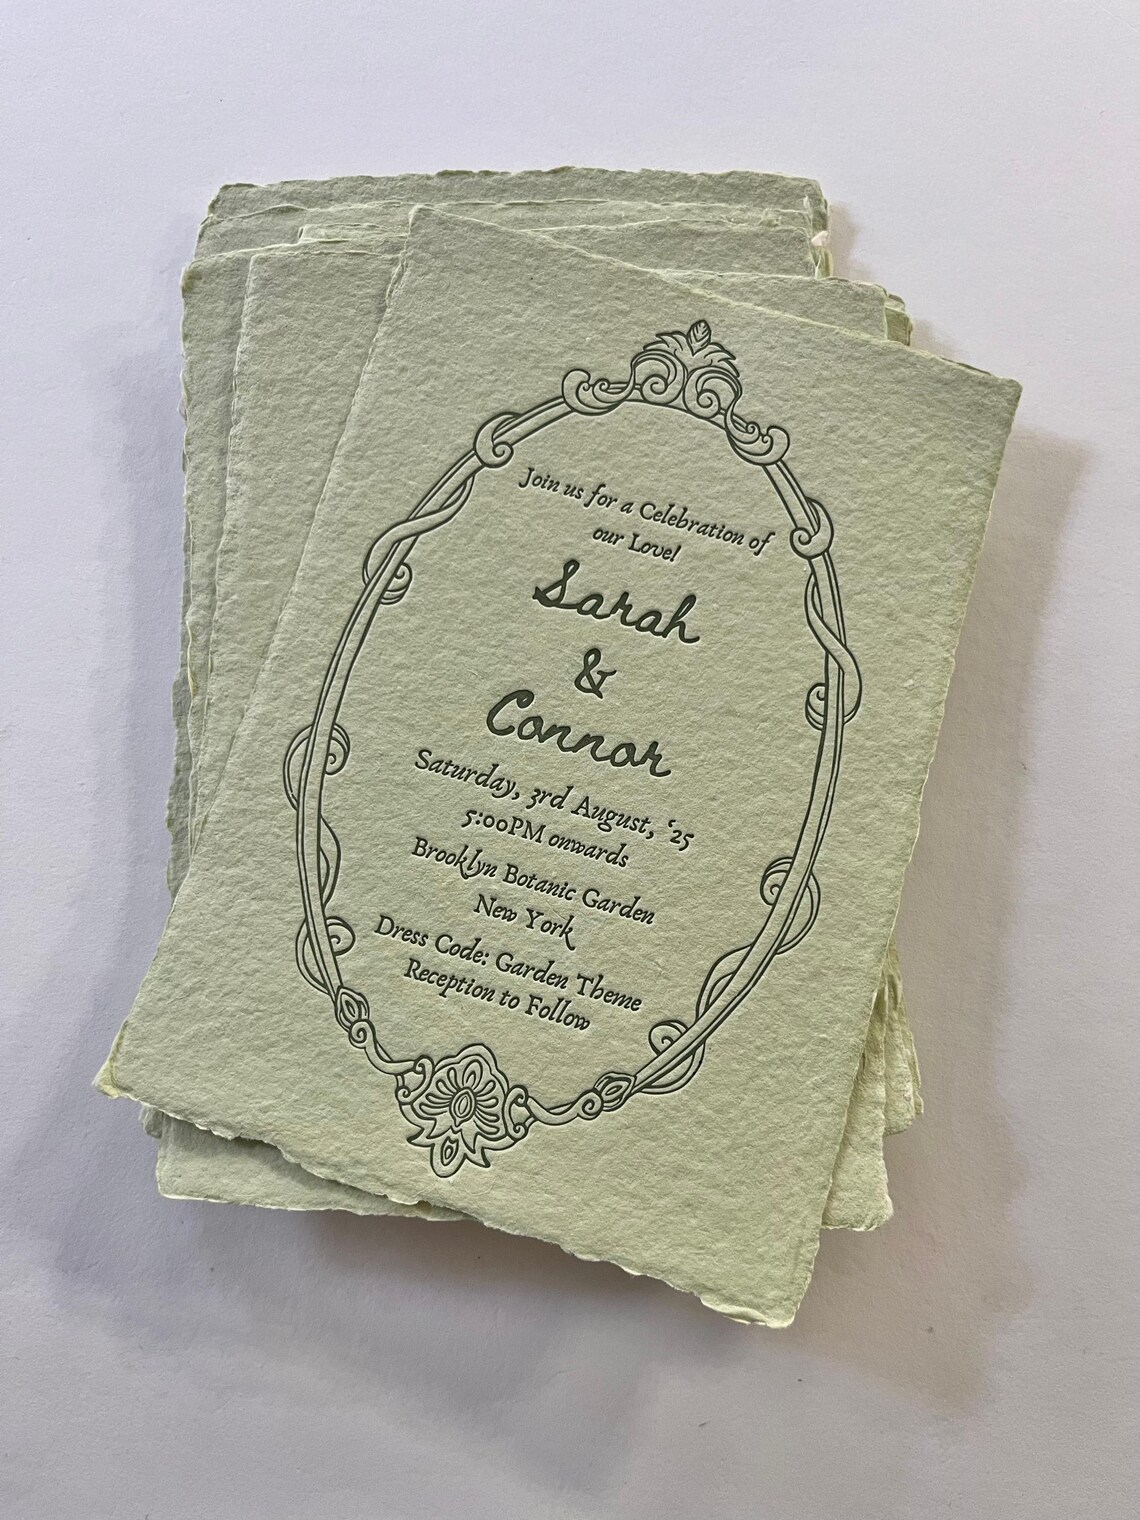 Join us for a Celebration of
our Love!
Sarah
&
Connor
Saturday, 3rd August, ‘25
5:00PM onwards
Brooklyn Botanic Garden
New York
Dress Code: Garden Theme
Reception to Follow